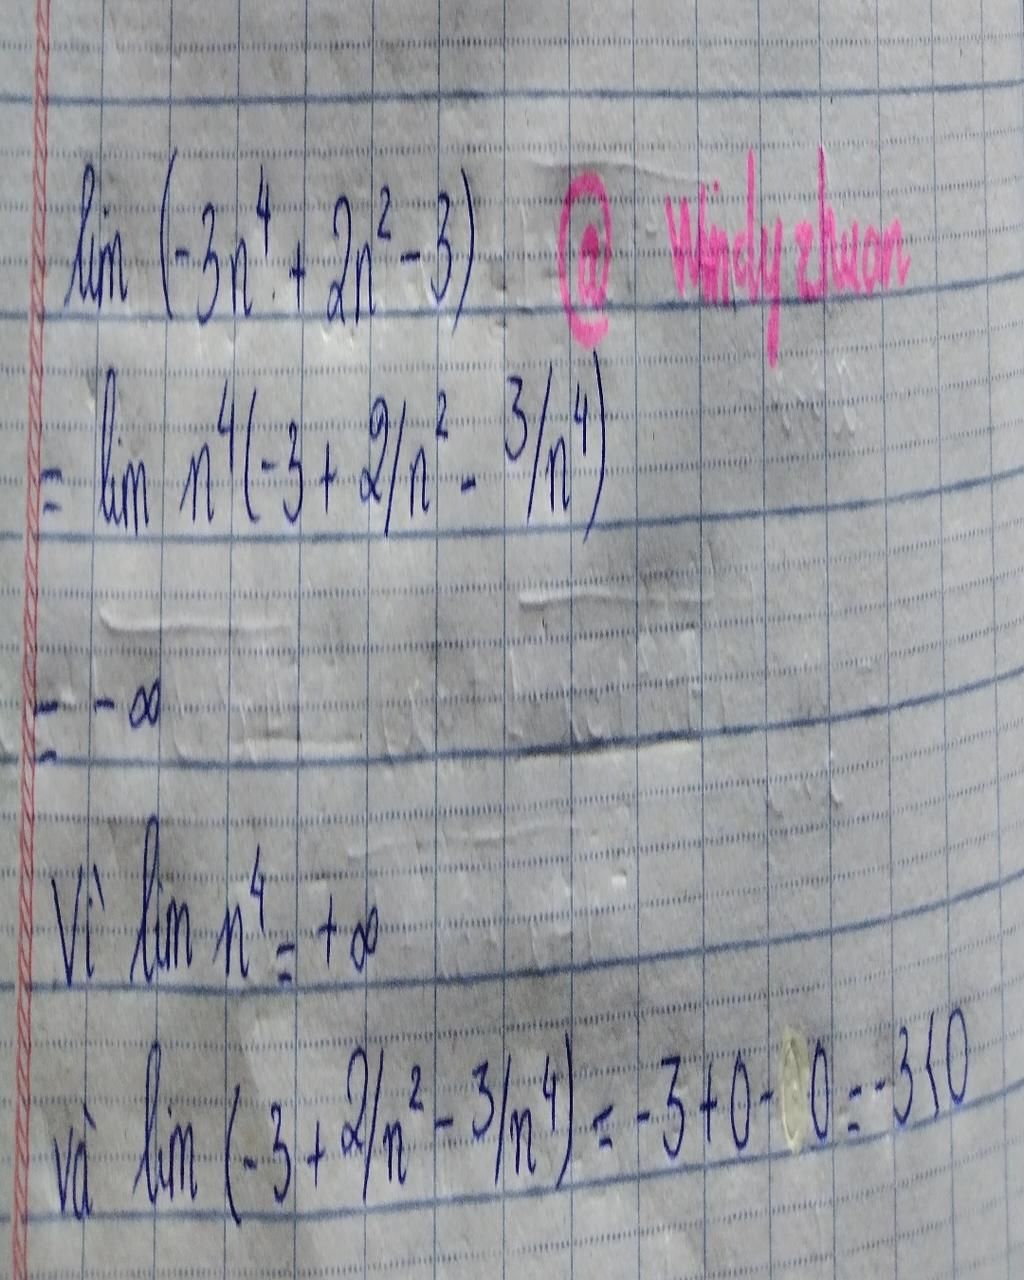 lim (-3n⁴ + 2n² - 3) @ Windyzhuon
= lim n⁴(-3 + 2/n² - 3/n⁴)
= -∞
Vì lim n⁴ = +∞
và lim (-3 + 2/n² - 3/n⁴) = -3+0-0 = -3<0